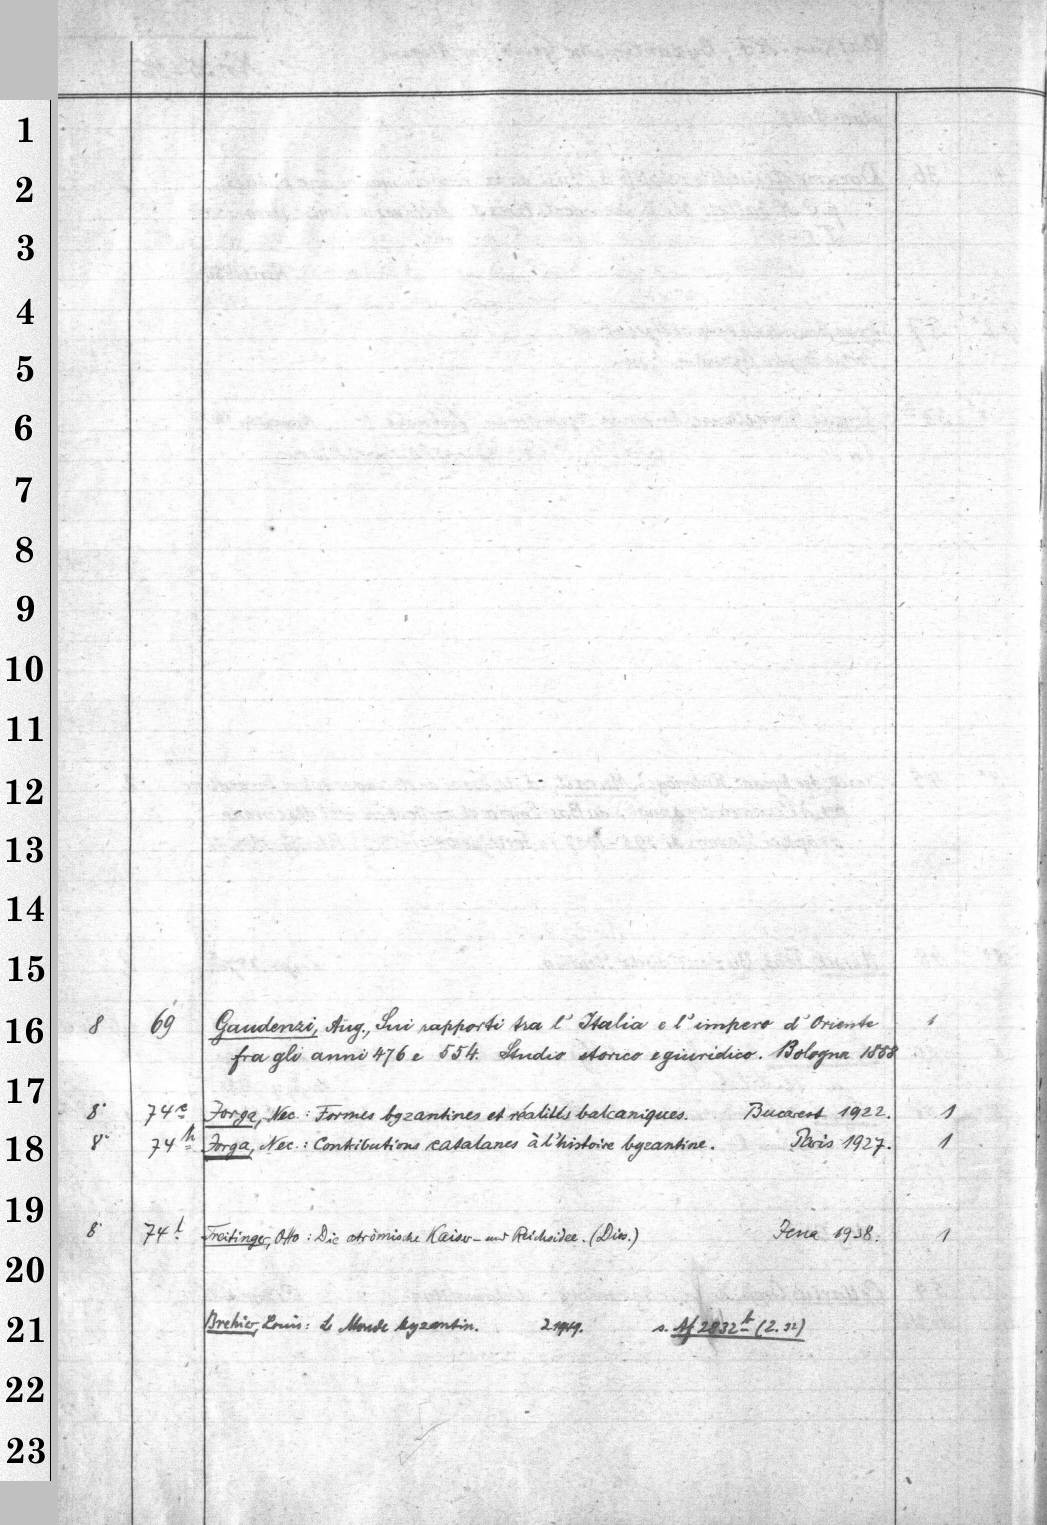 1
2
3
4
5
6
7
8
9
10
11
12
13
14
15
16
17
18
19
20
21
22
23
8 69 Gaudenzi, Aug., Sui rapporti tra l' Italia e l' impero d' Oriente 1
fra gli anni 476 e 554. Studio storico e giuridico. Bologna 1888
8° 74e Jorga, Nec.: Formes byzantines et réalités balcaniques. Bucarest 1922. 1
8° 74h Jorga, Nec.: Contributions catalanes à l'histoire byzantine. Paris 1927. 1
8° 74l Treitinger, Otto: Die oströmische Kaiser- und Reichsidee. (Diss.) Jena 1938. 1
Brehier, Louis: Le Monde byzantin. 1949. s. Af 2832h (2.32)